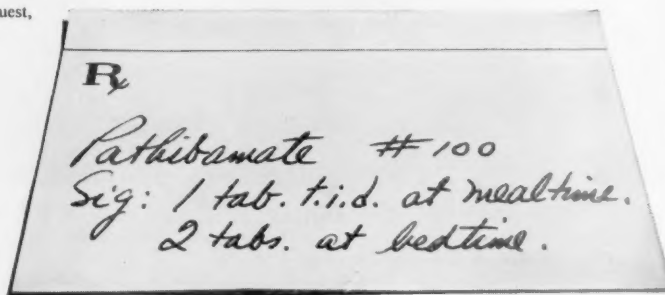 uest,
℞
Pathibamate #100
Sig: 1 tab. t.i.d. at mealtime.
2 tabs. at bedtime.